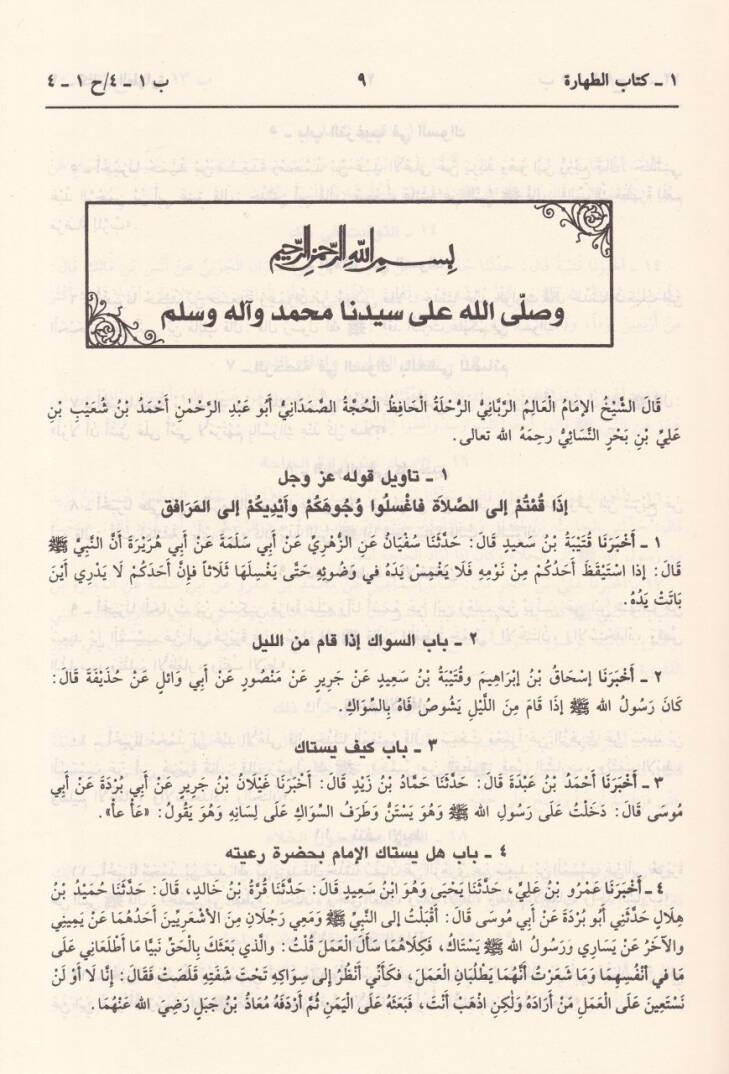 ١ ـ كتاب الطهارة ٩ ب ١ ـ ٤/ح ١ ـ ٤
بسم الله الرحمن الرحيم
وصلّى الله على سيدنا محمد وآله وسلم
قَالَ الشَّيْخُ الإِمَامُ الْعَالِمُ الرَّبَّانِيُّ الرُّحْلَةُ الْحَافِظُ الْحُجَّةُ الصَّمَدَانِيُّ أَبُو عَبْدِ الرَّحْمٰنِ أَحْمَدُ بْنُ شُعَيْبِ بْنِ
عَلِيِّ بْنِ بَحْرٍ النَّسَائِيُّ رحِمَهُ الله تعالى.
١ ـ تاويل قوله عز وجل
إذَا قُمْتُمْ إلى الصَّلاَةِ فاغْسلُوا وُجُوهَكُمْ وأيْدِيكُمْ إلى المَرافق
١ ـ أَخْبَرَنَا قُتَيْبَةُ بْنُ سَعِيدٍ قَالَ: حَدَّثَنَا سُفْيَانُ عَنِ الزُّهْرِيِّ عَنْ أَبِي سَلَمَةَ عَنْ أَبِي هُرَيْرَةَ أَنَّ النَّبِيَّ ﷺ
قَالَ: إذا اسْتَيْقَظَ أَحَدُكُمْ مِنْ نَوْمِهِ فَلَا يَغْمِسْ يَدَهُ في وَضُوئِهِ حَتَّى يَغْسِلَهَا ثَلاَثاً فَإنَّ أَحَدَكُمْ لَا يَدْرِي أَيْنَ
بَاتَتْ يَدُهُ.
٢ ـ باب السواك إذا قام من الليل
٢ ـ أَخْبَرَنَا إسْحَاقُ بْنُ إبْرَاهِيمَ وقُتَيْبَةُ بْنُ سَعِيدٍ عَنْ جَرِيرٍ عَنْ مَنْصُورٍ عَنْ أَبِي وَائِلٍ عَنْ حُذَيْفَةَ قَالَ:
كَانَ رَسُولُ الله ﷺ إذَا قَامَ مِنَ اللَّيْلِ يَشُوصُ فَاهُ بِالسِّوَاكِ.
٣ ـ باب كيف يستاك
٣ ـ أَخْبَرَنَا أَحْمَدُ بْنُ عَبْدَةَ قَالَ: حَدَّثَنَا حَمَّادُ بْنُ زَيْدٍ قَالَ: أَخْبَرَنَا غَيْلَانُ بْنُ جَرِيرٍ عَنْ أَبِي بُرْدَةَ عَنْ أَبِي
مُوسَى قَالَ: دَخَلْتُ عَلَى رَسُولِ الله ﷺ وَهُوَ يَسْتَنُّ وَطَرَفُ السِّوَاكِ عَلَى لِسَانِهِ وَهُوَ يَقُولُ: «عَأْ عأْ».
٤ ـ باب هل يستاك الإمام بحضرة رعيته
٤ ـ أَخْبَرَنَا عَمْرُو بْنُ عَلِيٍّ، حَدَّثَنَا يَحْيَى وَهُوَ ابْنُ سَعِيدٍ قَالَ: حَدَّثَنَا قُرَّةُ بْنُ خَالِدٍ، قَالَ: حَدَّثَنَا حُمَيْدُ بْنُ
هِلَالٍ حَدَّثَنِي أَبُو بُرْدَةَ عَنْ أَبِي مُوسَى قَالَ: أَقْبَلْتُ إلى النَّبِيِّ ﷺ وَمَعِي رَجُلَانِ مِنَ الأشْعَرِيِّينَ أَحَدُهُمَا عَنْ يَمِينِي
والآخَرُ عَنْ يَسَارِي وَرَسُولُ الله ﷺ يَسْتَاكُ، فَكِلَاهُمَا سَأَلَ الْعَمَلَ قُلْتُ: والَّذي بَعَثَكَ بِالْحَقِّ نَبيَّا مَا أطْلَعَانِي عَلَى
مَا في أَنْفُسِهِمَا وَمَا شَعَرْتُ أَنَّهُمَا يَطْلُبَانِ الْعَمَلَ، فَكَأَنِّي أَنْظُرُ إلى سِوَاكِهِ تَحْتَ شَفَتِهِ قَلَصَتْ فَقَالَ: إنَّا لَا أَوْ لَنْ
نَسْتَعِينَ عَلَى الْعَمَلِ مَنْ أَرَادَهُ وَلَكِنِ اذْهَبْ أَنْتَ، فَبَعَثَهُ عَلَى الْيَمَنِ ثُمَّ أَرْدَفَهُ مُعَاذُ بْنُ جَبَلٍ رَضِيَ الله عَنْهُمَا.